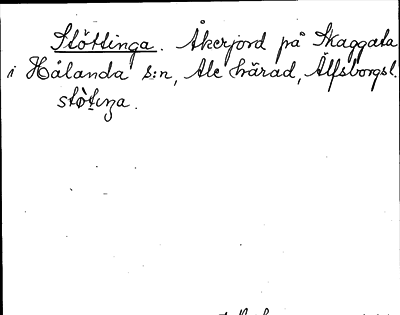 Stöttinga. Åkerjord på Skaggata
i Hålanda s:n, Ale härad, Älfsborgs l.